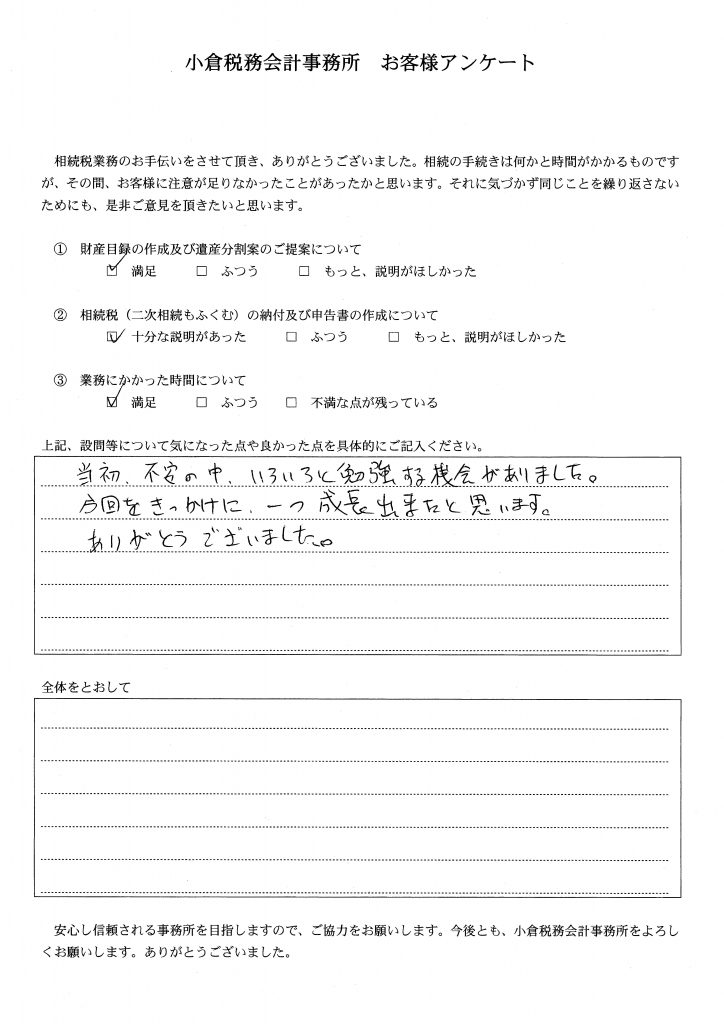 小倉税務会計事務所　お客様アンケート
相続税業務のお手伝いをさせて頂き、ありがとうございました。相続の手続きは何かと時間がかかるものです
が、その間、お客様に注意が足りなかったことがあったかと思います。それに気づかず同じことを繰り返さない
ためにも、是非ご意見を頂きたいと思います。
① 財産目録の作成及び遺産分割案のご提案について
☑ 満足　□ ふつう　□ もっと、説明がほしかった
② 相続税（二次相続もふくむ）の納付及び申告書の作成について
☑ 十分な説明があった　□ ふつう　□ もっと、説明がほしかった
③ 業務にかかった時間について
☑ 満足　□ ふつう　□ 不満な点が残っている
上記、設問等について気になった点や良かった点を具体的にご記入ください。
当初、不安の中、いろいろと勉強する機会がありました。
今回をきっかけに、一つ成長出来たと思います。
ありがとうございました。
全体をとおして
安心し信頼される事務所を目指しますので、ご協力をお願いします。今後とも、小倉税務会計事務所をよろし
くお願いします。ありがとうございました。